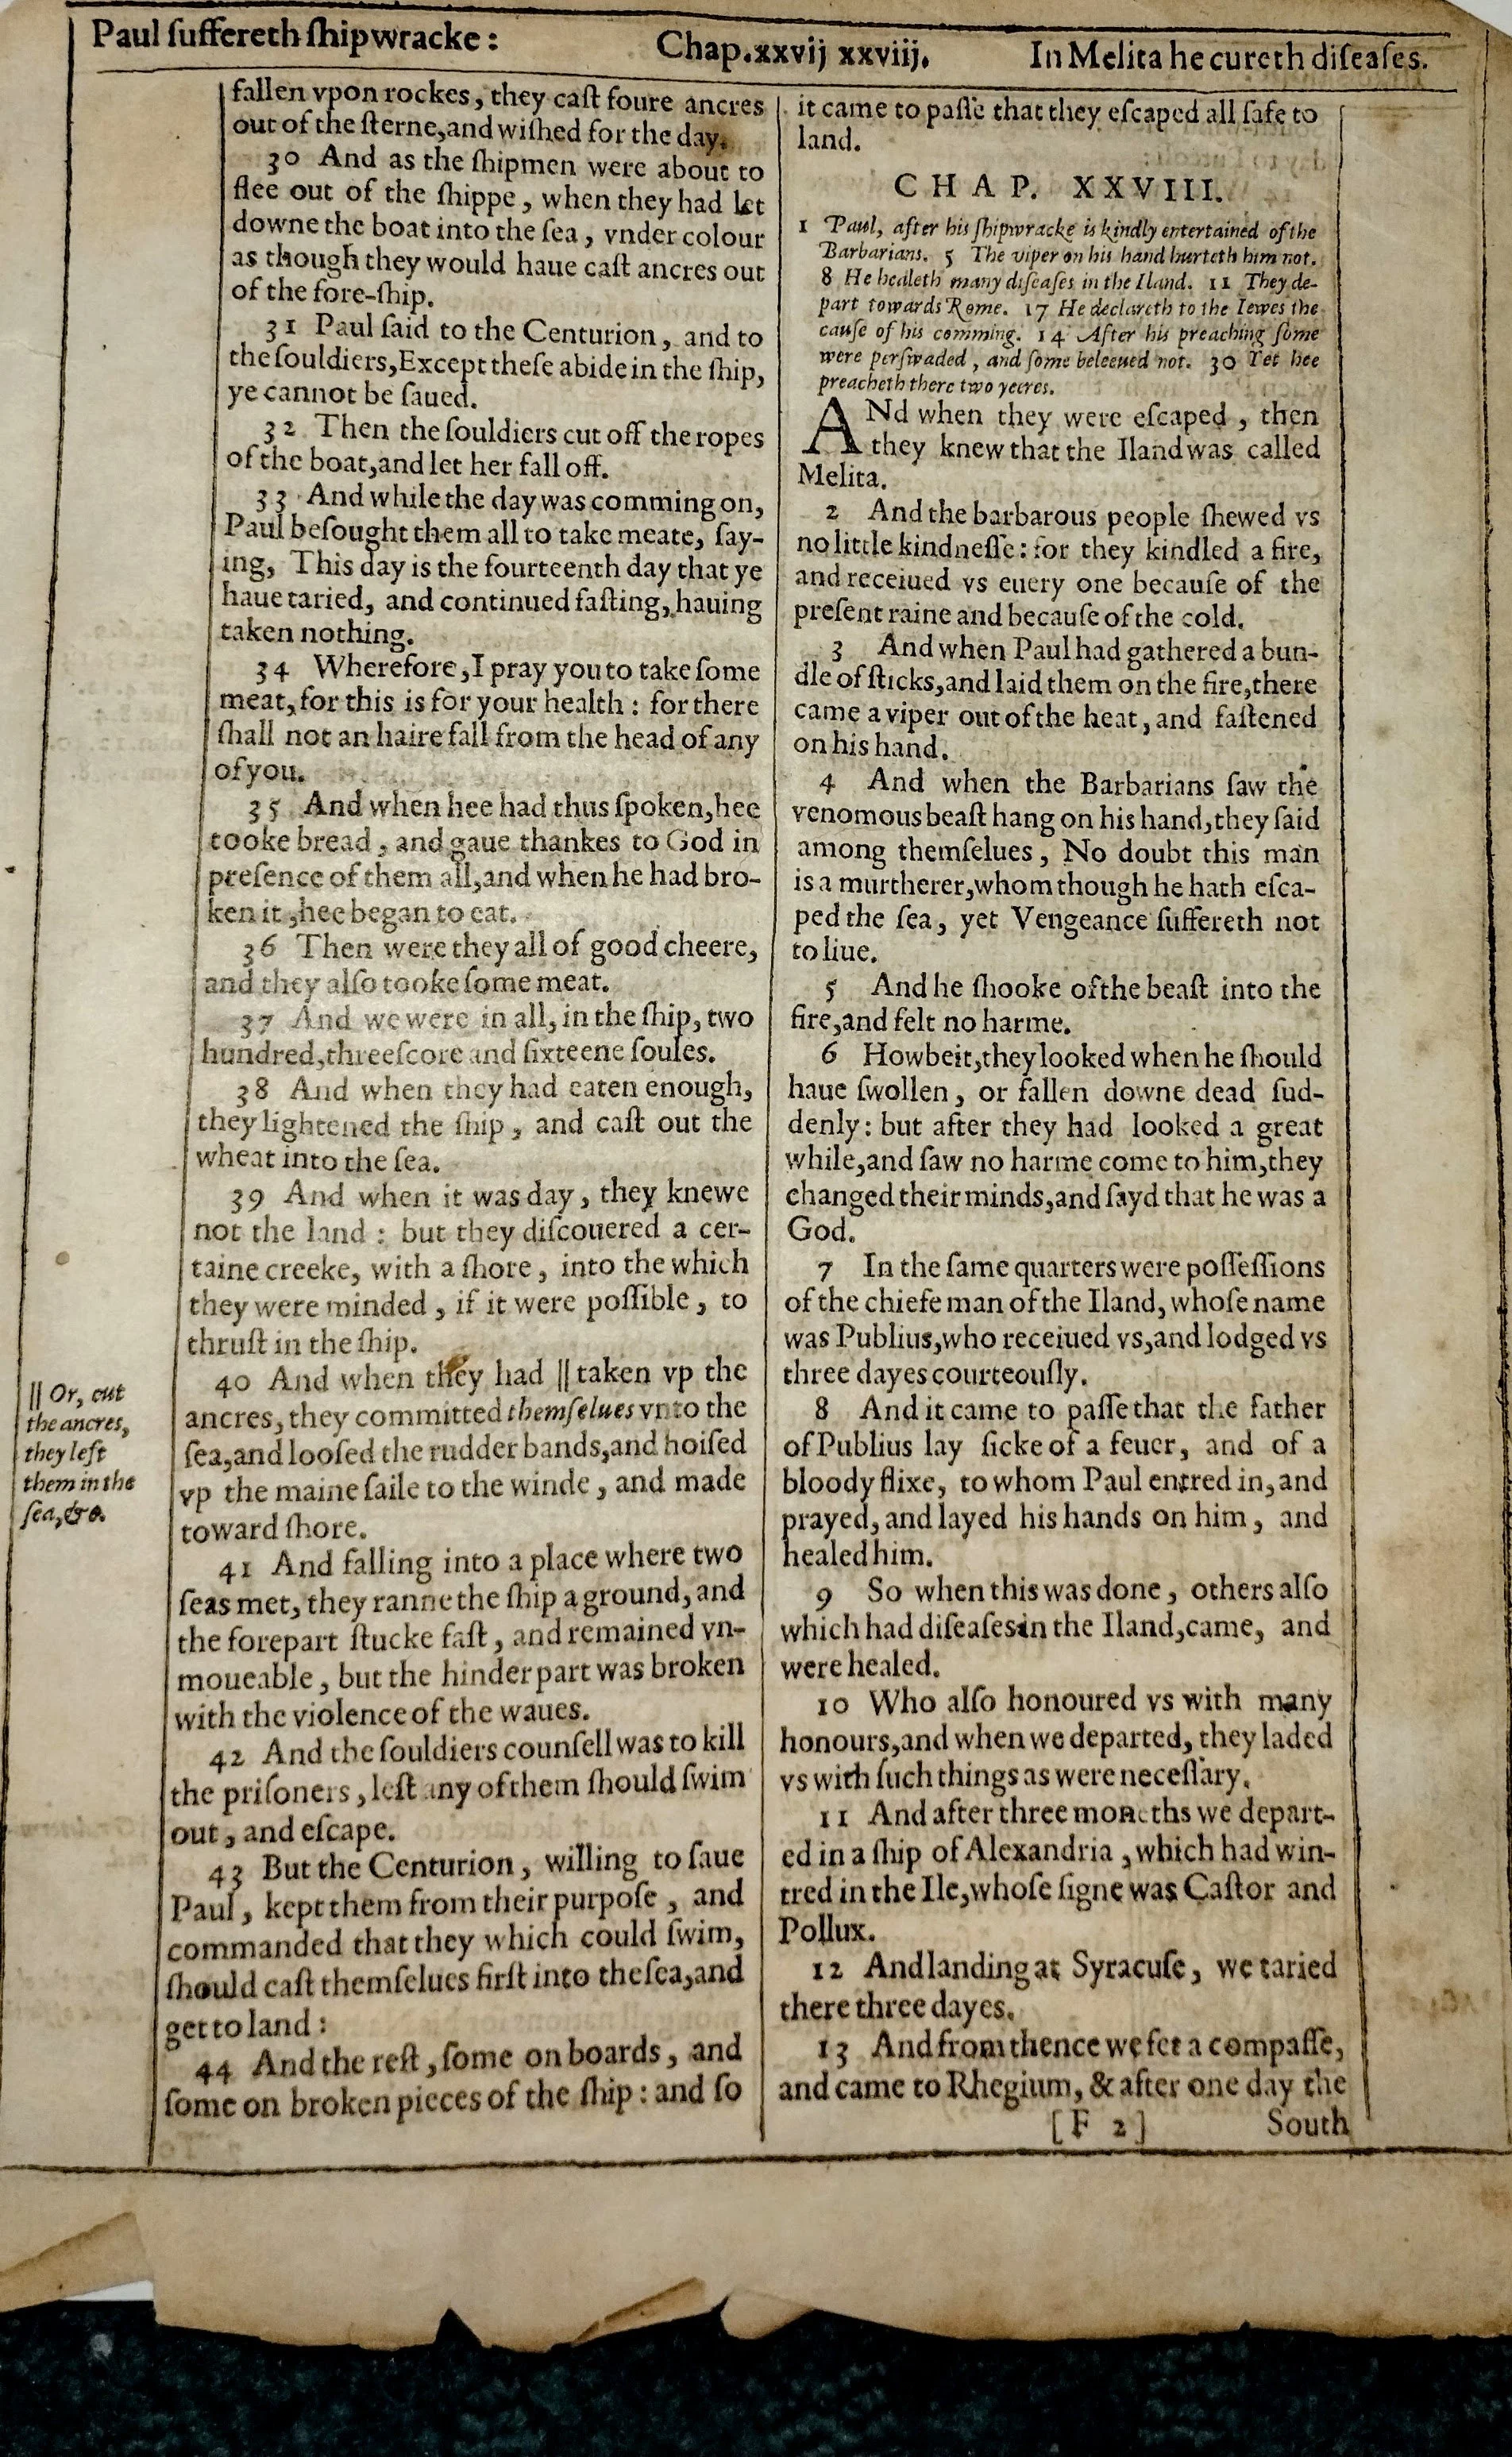 Paul ſuffereth ſhipwracke: Chap.xxvij xxviij. In Melita he cureth diſeaſes.
fallen vpon rockes, they caſt foure ancres
out of the ſterne,and wiſhed for the day.
30 And as the ſhipmen were about to
flee out of the ſhippe, when they had let
downe the boat into the ſea, vnder colour
as though they would haue caſt ancres out
of the fore-ſhip.
31 Paul ſaid to the Centurion, and to
the ſouldiers,Except theſe abide in the ſhip,
ye cannot be ſaued.
32 Then the ſouldiers cut off the ropes
of the boat,and let her fall off.
33 And while the day was comming on,
Paul beſought them all to take meate, ſay-
ing, This day is the fourteenth day that ye
haue taried, and continued faſting, hauing
taken nothing.
34 Wherefore,I pray you to take ſome
meat, for this is for your health: for there
ſhall not an haire fall from the head of any
of you.
35 And when hee had thus ſpoken,hee
tooke bread, and gaue thankes to God in
preſence of them all,and when he had bro-
ken it ,hee began to eat.
36 Then were they all of good cheere,
and they alſo tooke ſome meat.
37 And we were in all, in the ſhip, two
hundred,threeſcore and ſixteene ſoules.
38 And when they had eaten enough,
they lightened the ſhip, and caſt out the
wheat into the ſea.
39 And when it was day, they knewe
not the land: but they diſcouered a cer-
taine creeke, with a ſhore, into the which
they were minded, if it were poſſible, to
thruſt in the ſhip.
40 And when they had || taken vp the
ancres, they committed themſelues vnto the
ſea,and looſed the rudder bands,and hoiſed
vp the maine ſaile to the winde, and made
toward ſhore.
41 And falling into a place where two
ſeas met, they ranne the ſhip a ground, and
the forepart ſtucke faſt, and remained vn-
moueable, but the hinder part was broken
with the violence of the waues.
42 And the ſouldiers counſell was to kill
the priſoners, leſt any of them ſhould ſwim
out, and eſcape.
43 But the Centurion, willing to ſaue
Paul, kept them from their purpoſe, and
commanded that they which could ſwim,
ſhould caſt themſelues firſt into the ſea,and
get to land:
44 And the reſt, ſome on boards, and
ſome on broken pieces of the ſhip: and ſo
|| Or, cut
the ancres,
they left
them in the
ſea, &c.
it came to paſſe that they eſcaped all ſafe to
land.
CHAP. XXVIII.
1 Paul, after his ſhipwracke is kindly entertained of the
Barbarians. 5 The viper on his hand hurteth him not.
8 He healeth many diſeaſes in the Iland. 11 They de-
part towards Rome. 17 He declareth to the Iewes the
cauſe of his comming. 14 After his preaching ſome
were perſwaded, and ſome beleeued not. 30 Yet hee
preacheth there two yeeres.
ANd when they were eſcaped, then
they knew that the Iland was called
Melita.
2 And the barbarous people ſhewed vs
no little kindneſſe: for they kindled a fire,
and receiued vs euery one becauſe of the
preſent raine and becauſe of the cold.
3 And when Paul had gathered a bun-
dle of ſticks,and laid them on the fire,there
came a viper out of the heat, and faſtened
on his hand.
4 And when the Barbarians ſaw the
venomous beaſt hang on his hand,they ſaid
among themſelues, No doubt this man
is a murtherer,whom though he hath eſca-
ped the ſea, yet Vengeance ſuffereth not
to liue.
5 And he ſhooke of the beaſt into the
fire,and felt no harme.
6 Howbeit,they looked when he ſhould
haue ſwollen, or fallen downe dead ſud-
denly: but after they had looked a great
while,and ſaw no harme come to him,they
changed their minds,and ſayd that he was a
God.
7 In the ſame quarters were poſſeſſions
of the chiefe man of the Iland, whoſe name
was Publius,who receiued vs,and lodged vs
three dayes courteouſly.
8 And it came to paſſe that the father
of Publius lay ſicke of a feuer, and of a
bloody flixe, to whom Paul entred in, and
prayed, and layed his hands on him, and
healed him.
9 So when this was done, others alſo
which had diſeaſes in the Iland,came, and
were healed.
10 Who alſo honoured vs with many
honours,and when we departed, they laded
vs with ſuch things as were neceſſary.
11 And after three moneths we depart-
ed in a ſhip of Alexandria, which had win-
tred in the Ile,whoſe ſigne was Caſtor and
Pollux.
12 And landing at Syracuſe, we taried
there three dayes.
13 And from thence we fet a compaſſe,
and came to Rhegium, & after one day the
[F 2] South